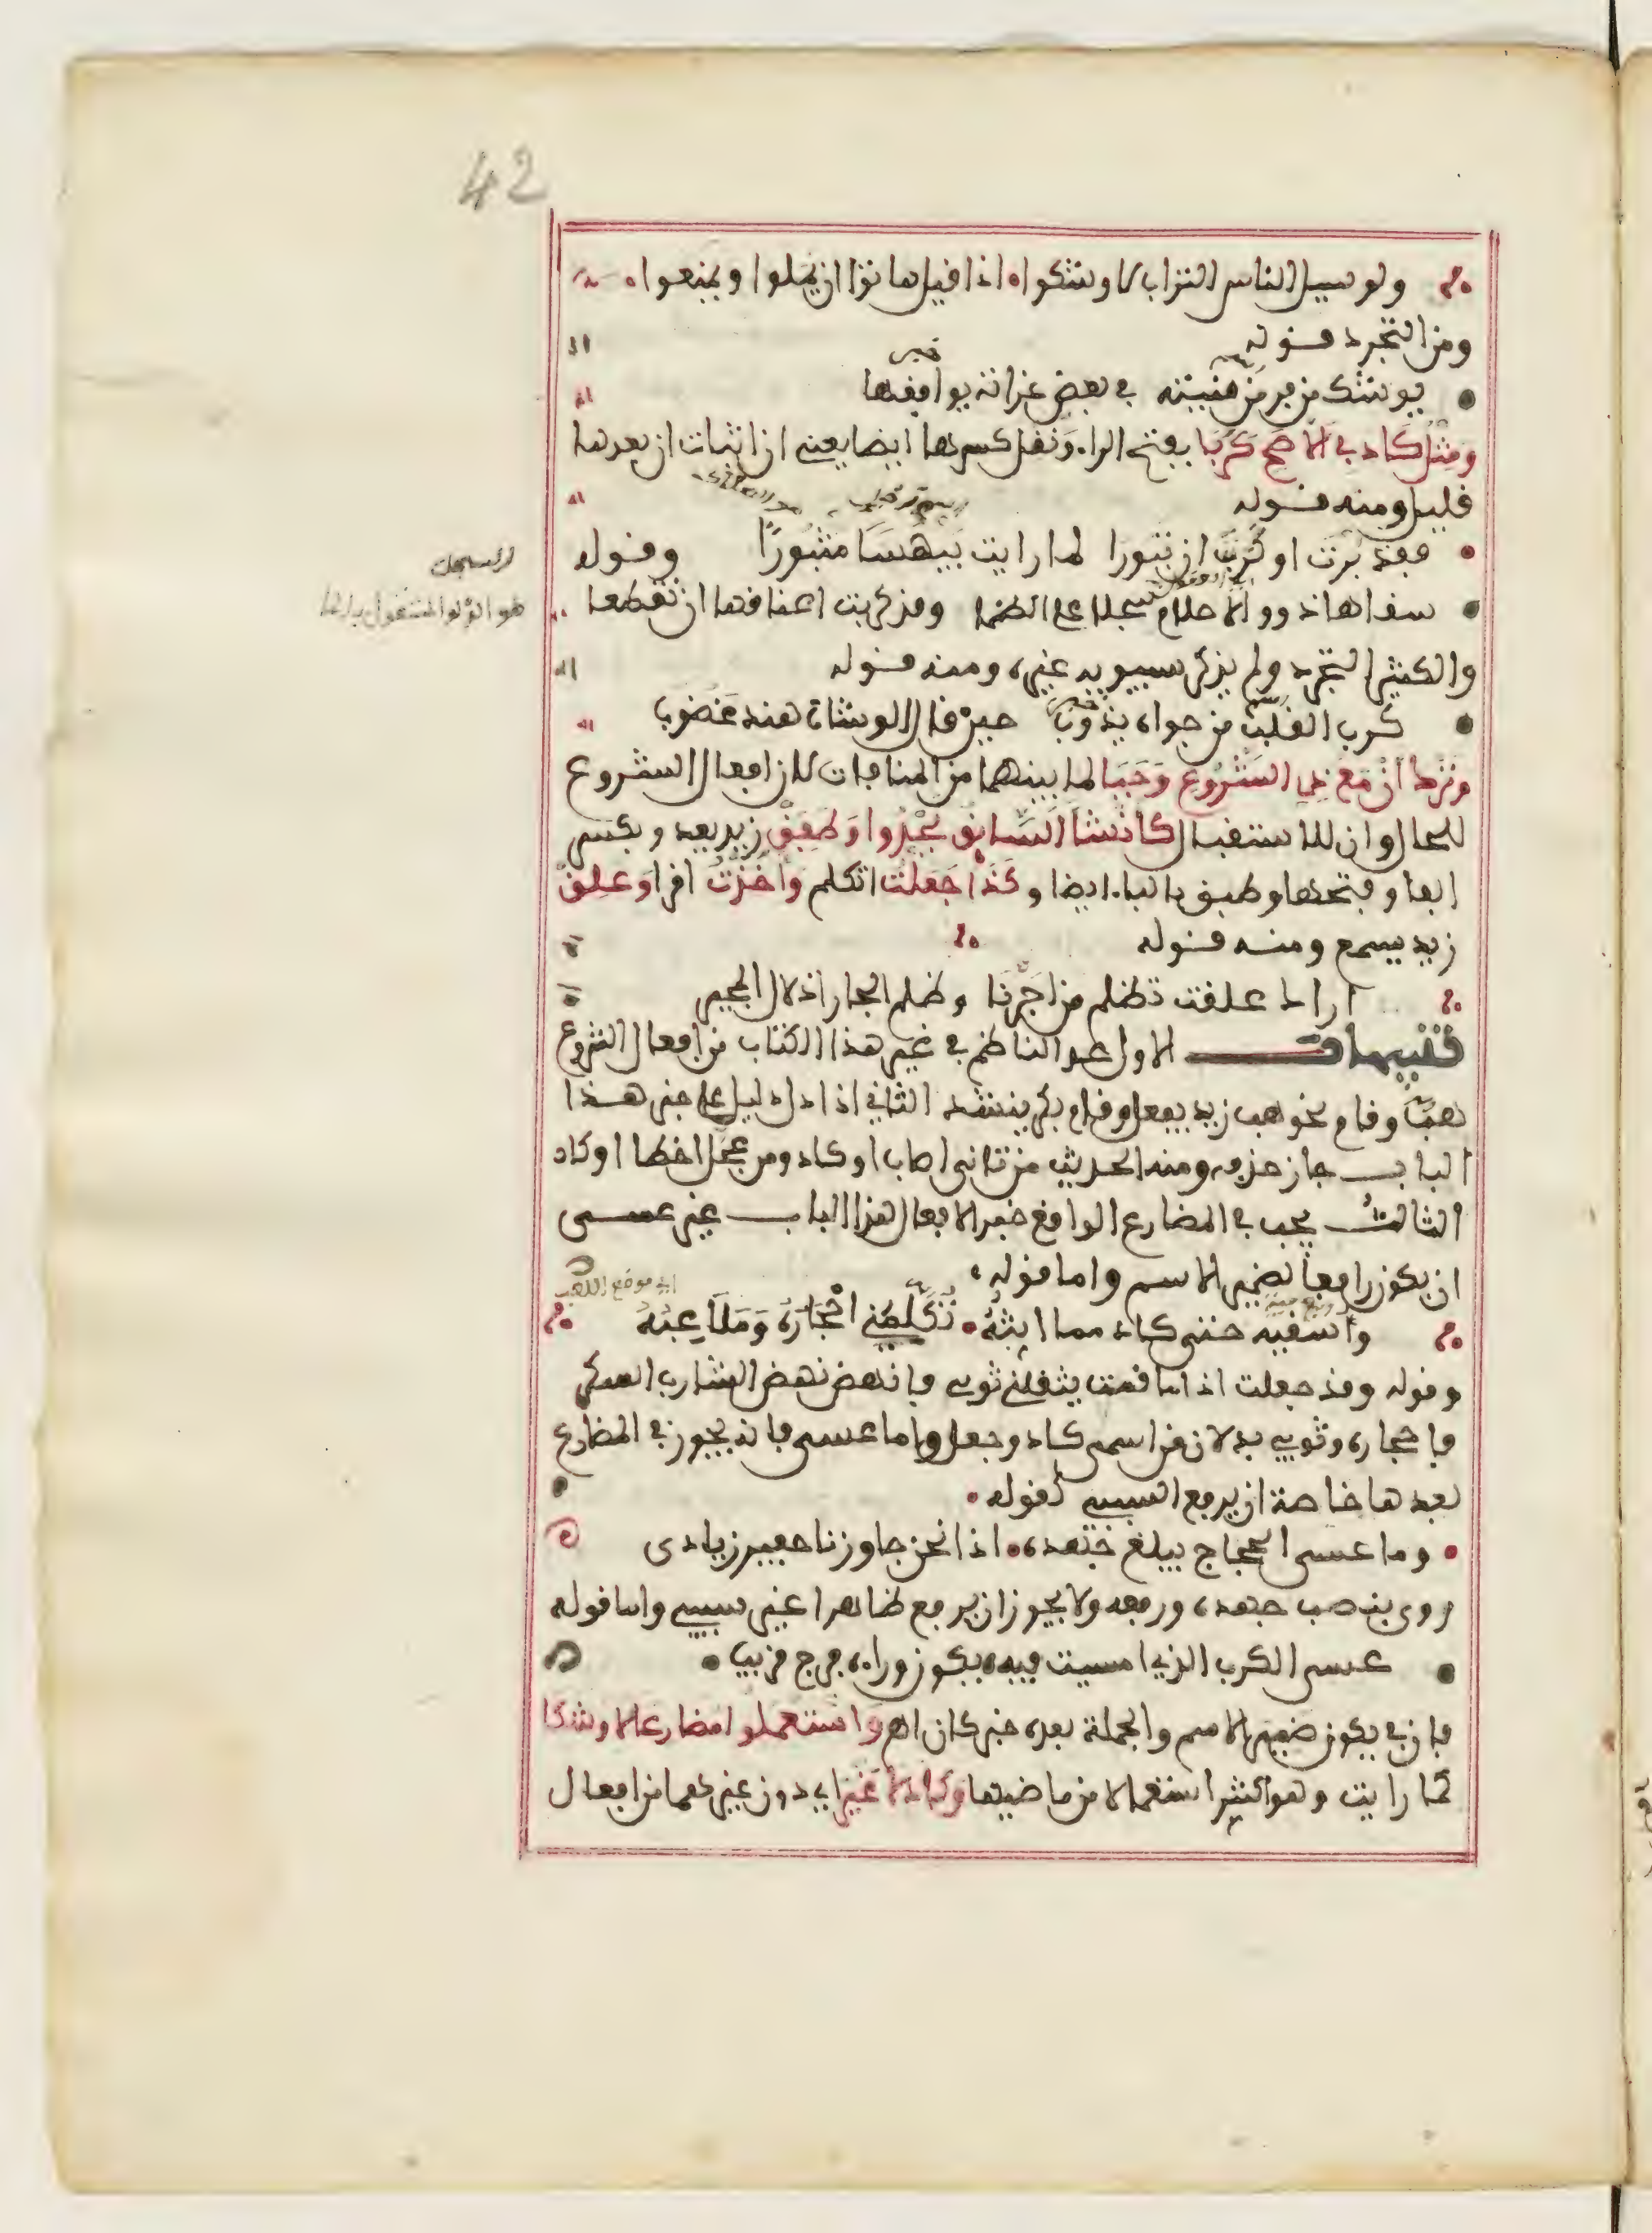 42
ولو سيل الناس التراب لاوشكوا اذا قيل هاتوا ان يملوا ويمنعوا
ومن التجرد قوله
يوشك من فر من منيته في بعض غراته يوافقها
خبر
ومثل كاد في الاصح كربا بفتح الراء ونقل كسرها ايضا يعني ان اثبات ان بعدها
قليل ومنه قوله
فقد برت او كربت ان تبورا لما رايت بيهسا مثبورا وقوله
سقاها ذوو الاحلام سجلا على الظما وقد كربت اعناقها ان تقطعا
السجل
هو الدلو المشغول بالما
والكثير التجرد ولم يذكر سيبويه غيره ومنه قوله
كرب القلب من جواه يذوب حين قال الوشاة هند غضوب
وترك ان مع ذي الشروع وجبا لما بينهما من المنافات لان افعال الشروع
للحال وان للاستقبال كانشا السايق يحدوا وطفق زيد يعد وبكسر
الفا وفتحها وطبق بالباء ايضا وكذا جعلت اتكلم واخذت اقرا وعلق
زيد يسمع ومنه قوله
اراك علقت تظلم من اجرنا وظلم الجار اذلال المجير
تنبيهات الاول عد الناظم في غير هذا الكتاب من افعال الشروع
هب وقام نحو هب زيد يفعل وقام بكر ينشد الثاني اذا دل دليل على خبر هذا
الباب جاز حذفه ومنه الحديث من تانى اصاب او كاد ومن عجل اخطا او كاد
الثالث يجب في المضارع الواقع خبر الافعال هذا الباب غير عسى
ان يكون رافعا لضمير الاسم واما قوله
اي موضع اللعب
واسقيه حتى كاد مما ابثه تكلمني احجاره وملاعبه
وقوله وقد جعلت اذا ما قمت يثقلني ثوبي فانهض نهض الشارب السكر
فاحجاره وثوبي بدلان من اسمي كاد وجعل واما عسى فانه يجوز في المضارع
بعدها خاصة ان يرفع السببي كقوله
وما عسى الحجاج يبلغ جهده اذا نحن جاوزنا حفير زيادى
روي بنصب جهده ورفعه ولا يجوز ان يرفع ظاهرا غير سببي واما قوله
عسى الكرب الذي امسيت فيه يكون وراءه فرج قريب
فان في يكون ضمير الاسم والجملة بعده خبر كان اهـ واستعملوا مضارعا لاوشكا
كما رايت وهو اكثر استعمالا من ماضيها وكاد لا غير اي دون غيرهما من افعال